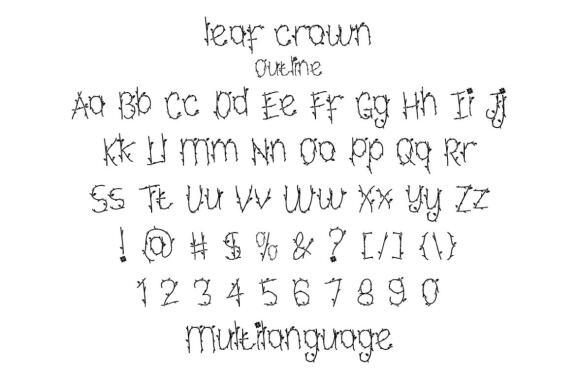 leaf crown
outline
Aa Bb Cc Dd Ee Ff Gg Hh Ii Jj
Kk Ll Mm Nn Oo Pp Qq Rr
Ss Tt Uu Vv Ww Xx Yy Zz
! @ # $ % & ? [/] {\}
1 2 3 4 5 6 7 8 9 0
multilanguage